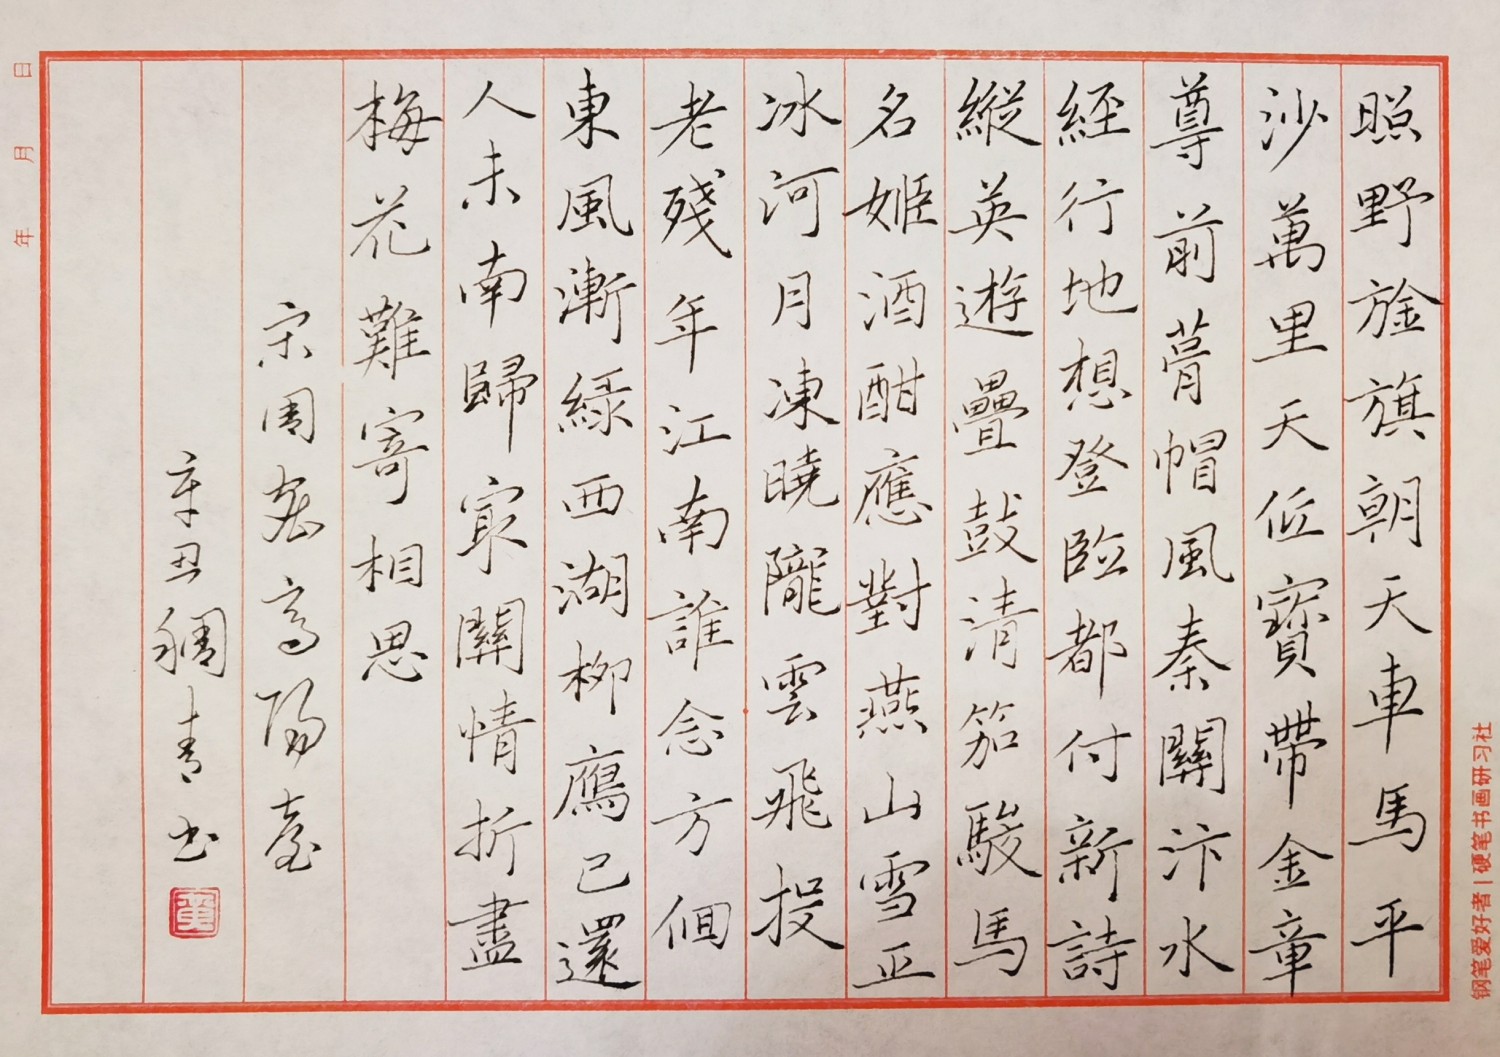 照野旌旗朝天車馬平
沙萬里天低寶帶金章
尊前茸帽風秦關汴水
經行地想登臨都付新詩
縱英遊疊鼓清笳駿馬
名姬酒酣應對燕山雪正
冰河月凍曉隴雲飛投
老殘年江南誰念方回
東風漸綠西湖柳鴈已還
人未南歸最關情折盡
梅花難寄相思
宋周密高陽臺
辛丑稠青书
年 月 日
钢笔爱好者|硬笔书画研习社